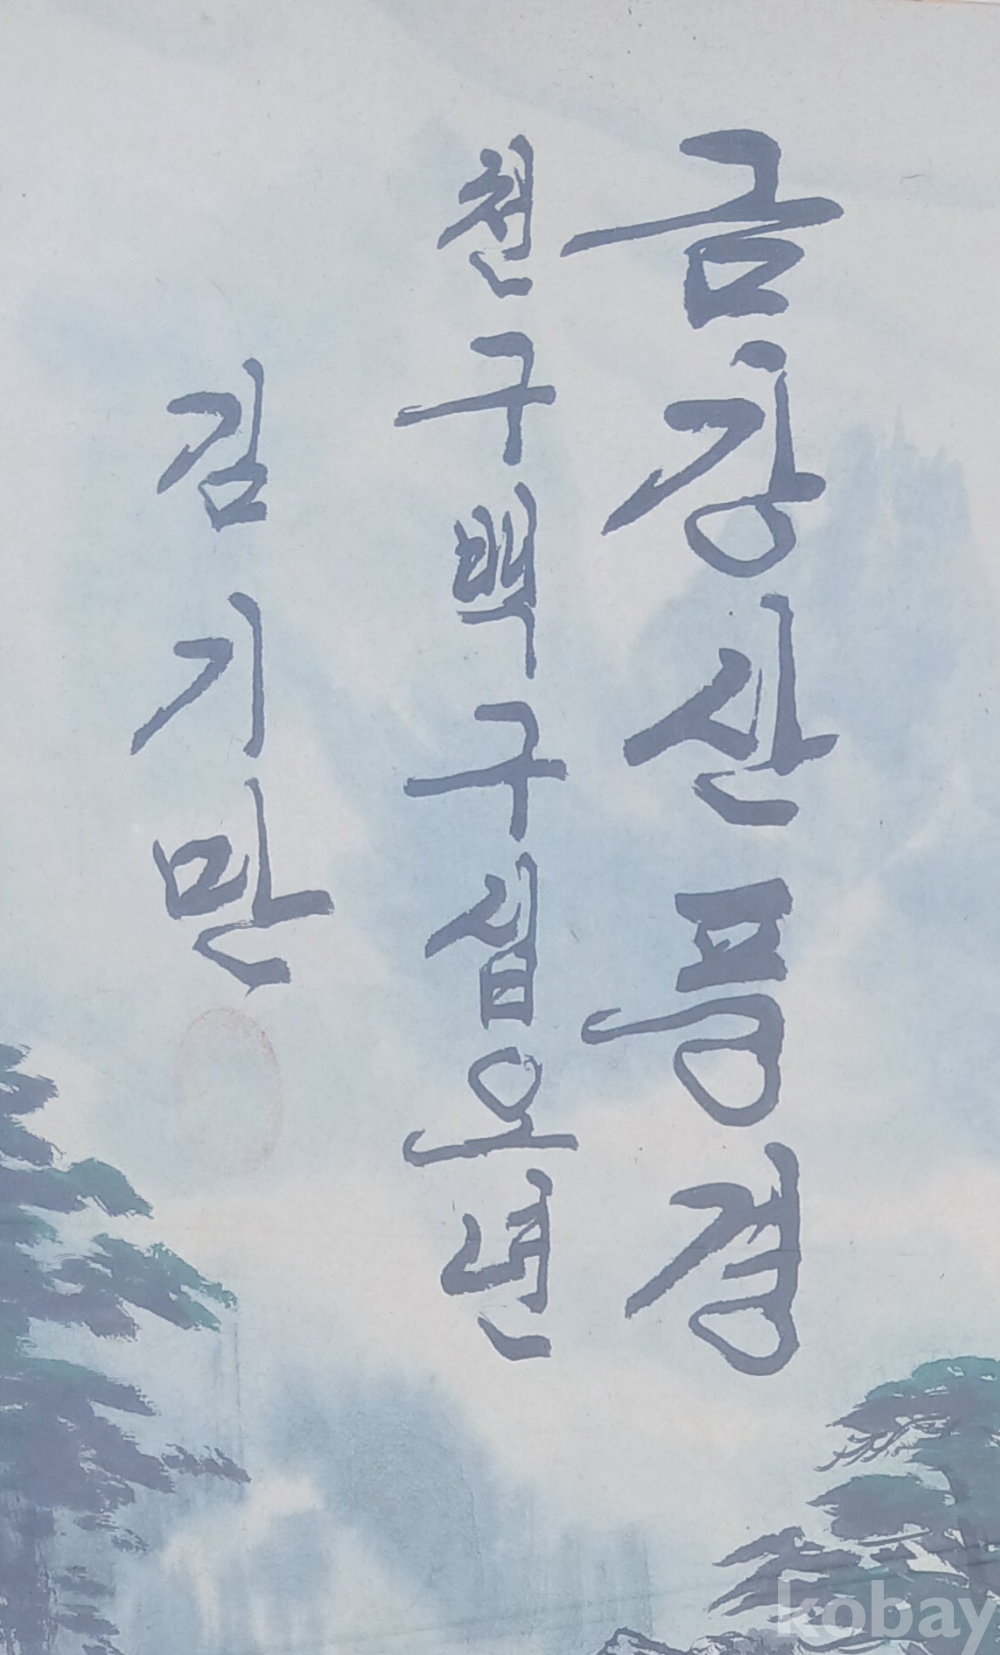 금강산풍경
천구백구십오년
김기만
kobay